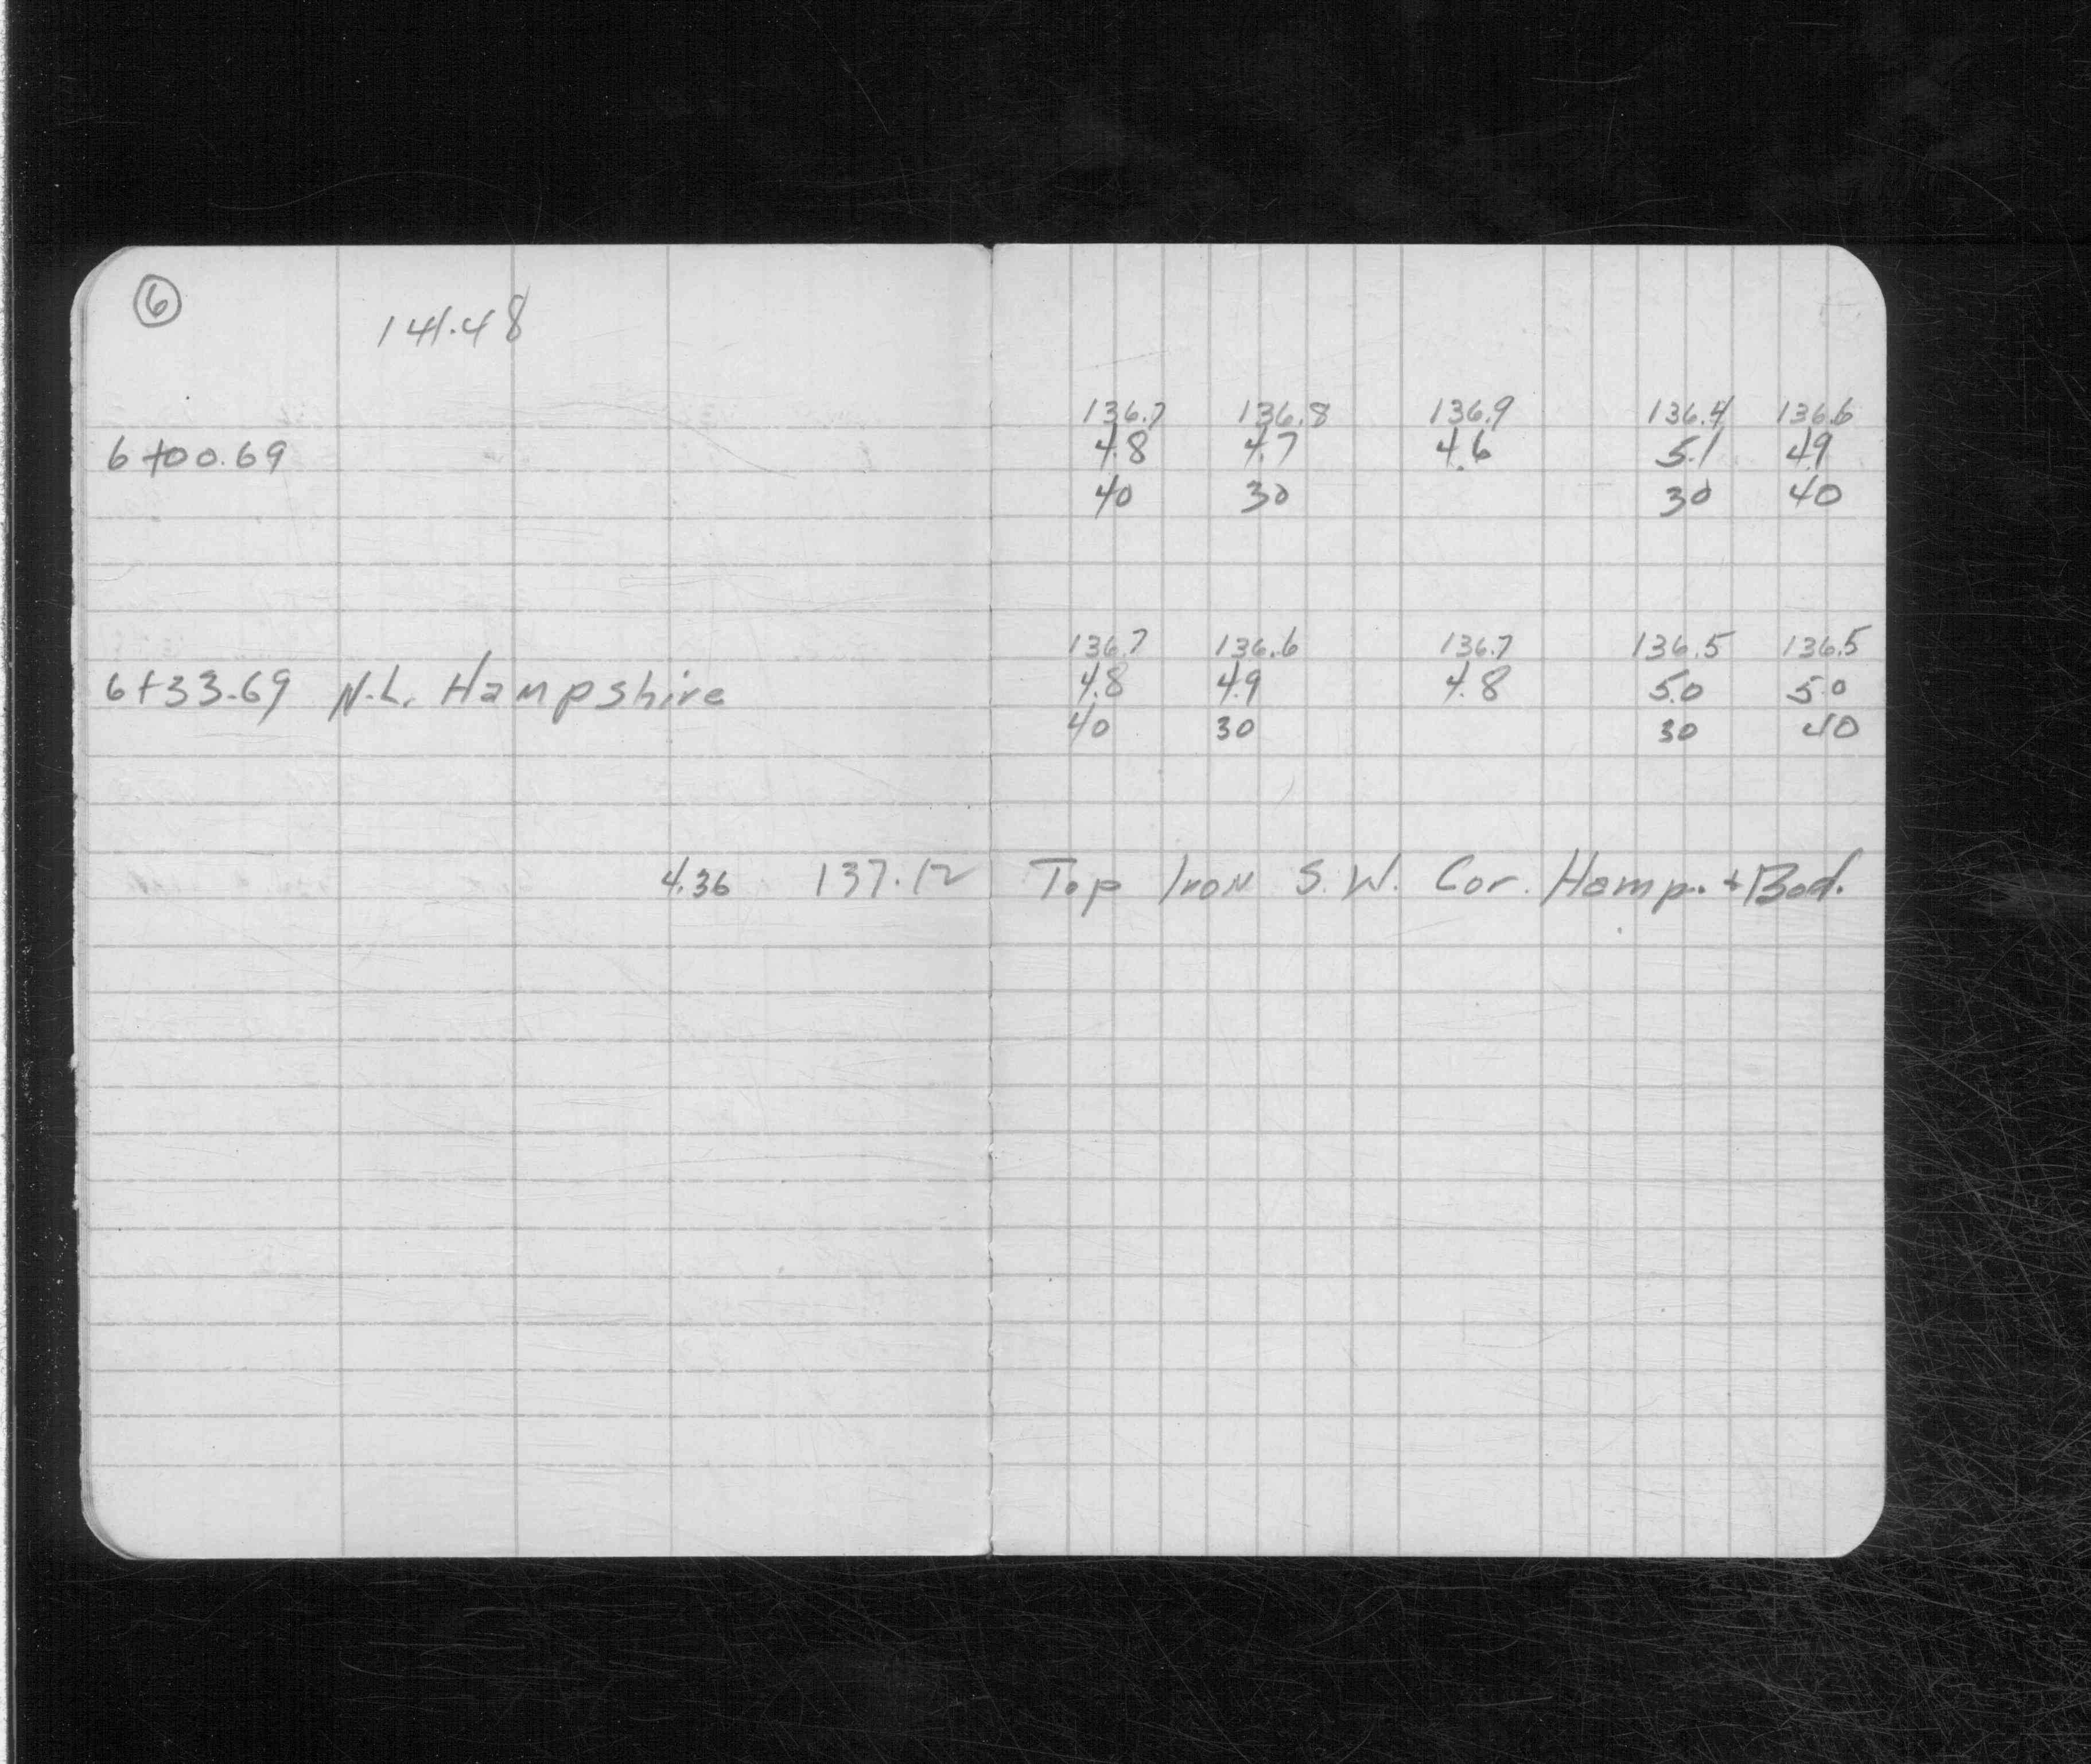 6
141.48
136.7 136.8 136.9 136.4 136.6
6+00.69 4.8 4.7 4.6 5.1 4.9
40 30 30 40
136.7 136.6 136.7 136.5 136.5
6+33.69 N.L. Hampshire 4.8 4.9 4.8 5.0 5.0
40 30 30 40
4.36 137.12 Top Iron S.W. Cor. Hamp. + Bed.